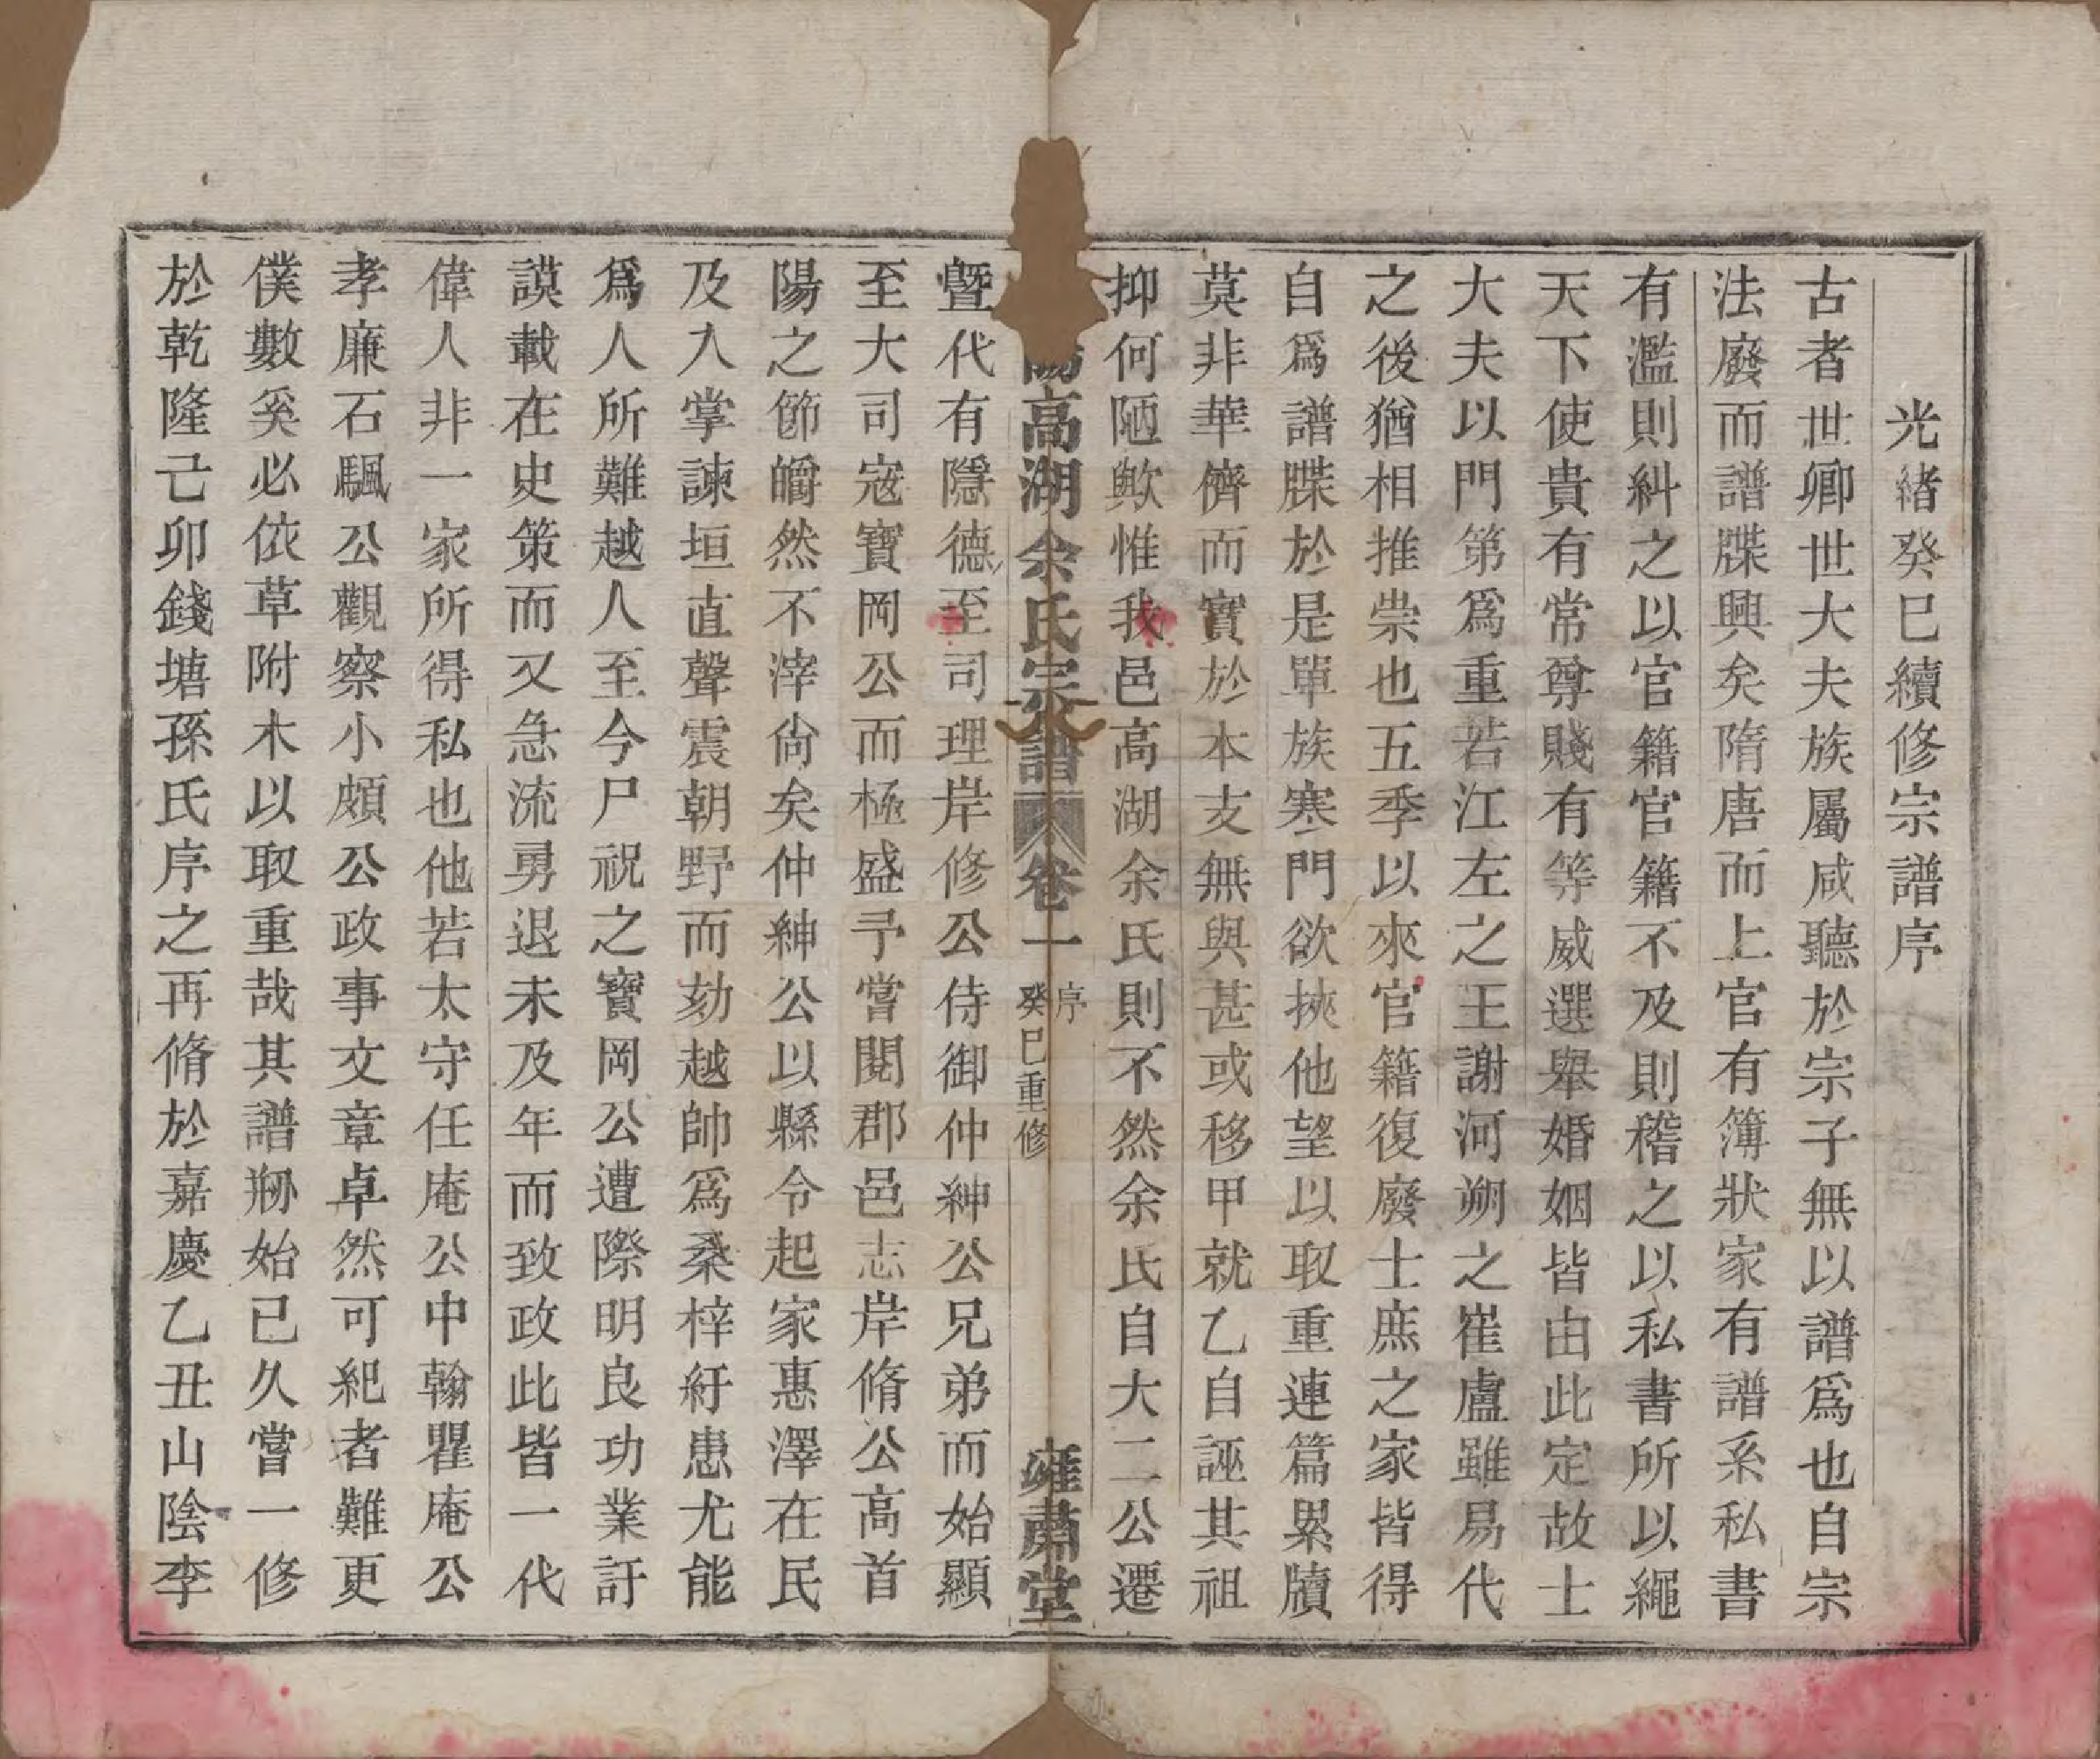 光緒癸巳續修宗譜序
古者世卿世大夫族屬咸聽於宗子無以譜爲也自宗
法廢而譜牒興矣隋唐而上官有簿狀家有譜系私書
有濫則糾之以官籍官籍不及則稽之以私書所以繩
天下使貴有常尊賤有等威選舉婚姻皆由此定故士
大夫以門第爲重若江左之王謝河朔之崔盧雖易代
之後猶相推崇也五季以來官籍復廢士庶之家皆得
自爲譜牒於是單族寒門欲挾他望以取重連篇累牘
莫非華儕而實於本支無與甚或移甲就乙自誣其祖
抑何陋歟惟我邑高湖余氏則不然余氏自大二公遷
陽高湖余氏宗譜 卷一 序 癸巳重修 雝肅堂
暨代有隱德至司理岸修公侍御仲紳公兄弟而始顯
至大司寇寶岡公而極盛予嘗閱郡邑志岸脩公高首
陽之節皭然不滓尙矣仲紳公以縣令起家惠澤在民
及入掌諫垣直聲震朝野而劾越帥爲桑梓紓患尤能
爲人所難越人至今尸祝之寶岡公遭際明良功業訏
謨載在史策而又急流勇退未及年而致政此皆一代
偉人非一家所得私也他若太守任庵公中翰瞿庵公
孝廉石驪公觀察小頗公政事文章卓然可紀者難更
僕數奚必依草附木以取重哉其譜刱始已久嘗一修
於乾隆己卯錢塘孫氏序之再脩於嘉慶乙丑山陰李